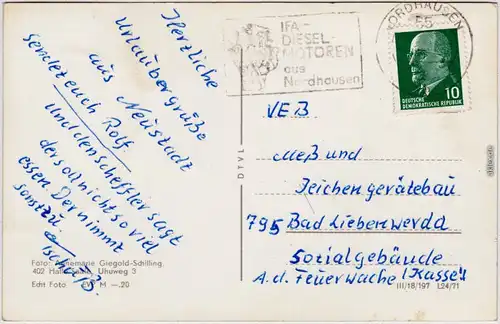 Herzliche
Urlaubergrüße
aus Neustadt
sendet euch Rolf
und den scheffler sagt
der soll nicht so viel
essen. Der nimmt
sonst zu.
Tschüß.
Foto: Annemarie Giegold-Schilling,
402 Halle-Saale, Uhuweg 3
Echt Foto EVP M —.20
DTVL
IFA-
DIESEL-
MOTOREN
aus
Nordhausen
NORDHAUSEN
55
10
DEUTSCHE
DEMOKRATISCHE REPUBLIK
VEB
Meß und
Zeichengerätebau
795 Bad Liebenwerda
Sozialgebäude
A.d. Feuerwache (Kasse)
III/18/197 L24/71